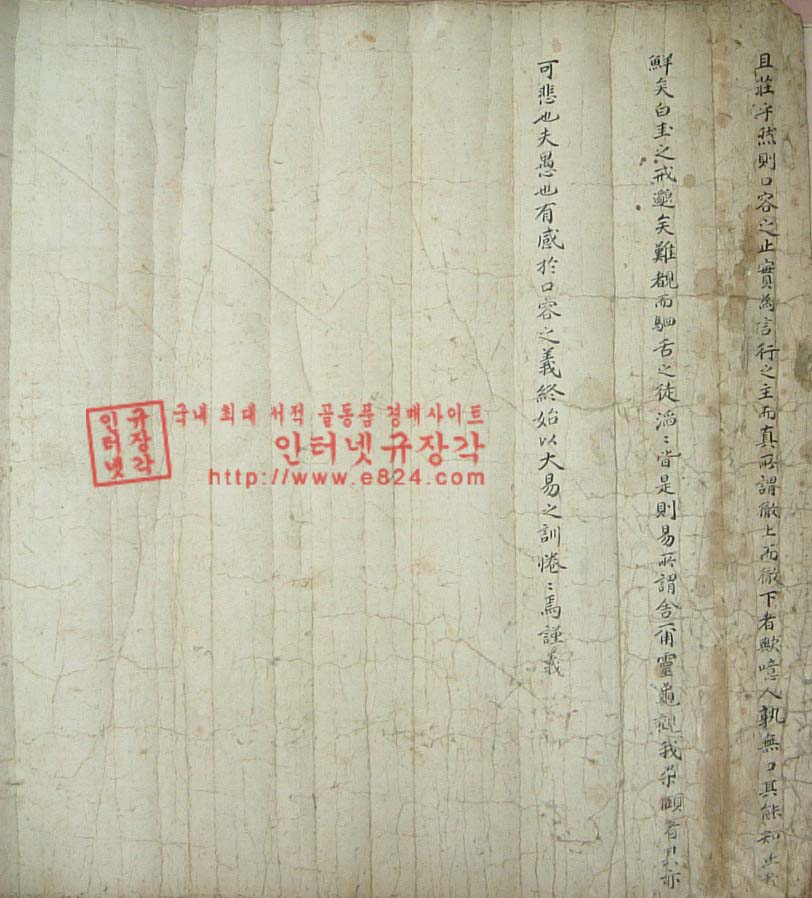 且莊乎然則口容之止實爲言行之主而真所謂徹上而徹下者歟噫人孰無口其能知止者
鮮矣白圭之戒邈矣難覩而駟舌之徒滔〻皆是則易所謂舍爾靈龜觀我朶頤者其亦
可悲也夫愚也有感於口容之義終始以大易之訓惓〻焉謹義
인터넷 규장각
국내 최대 서적 골동품 경매사이트
인터넷규장각
http://www.e824.com